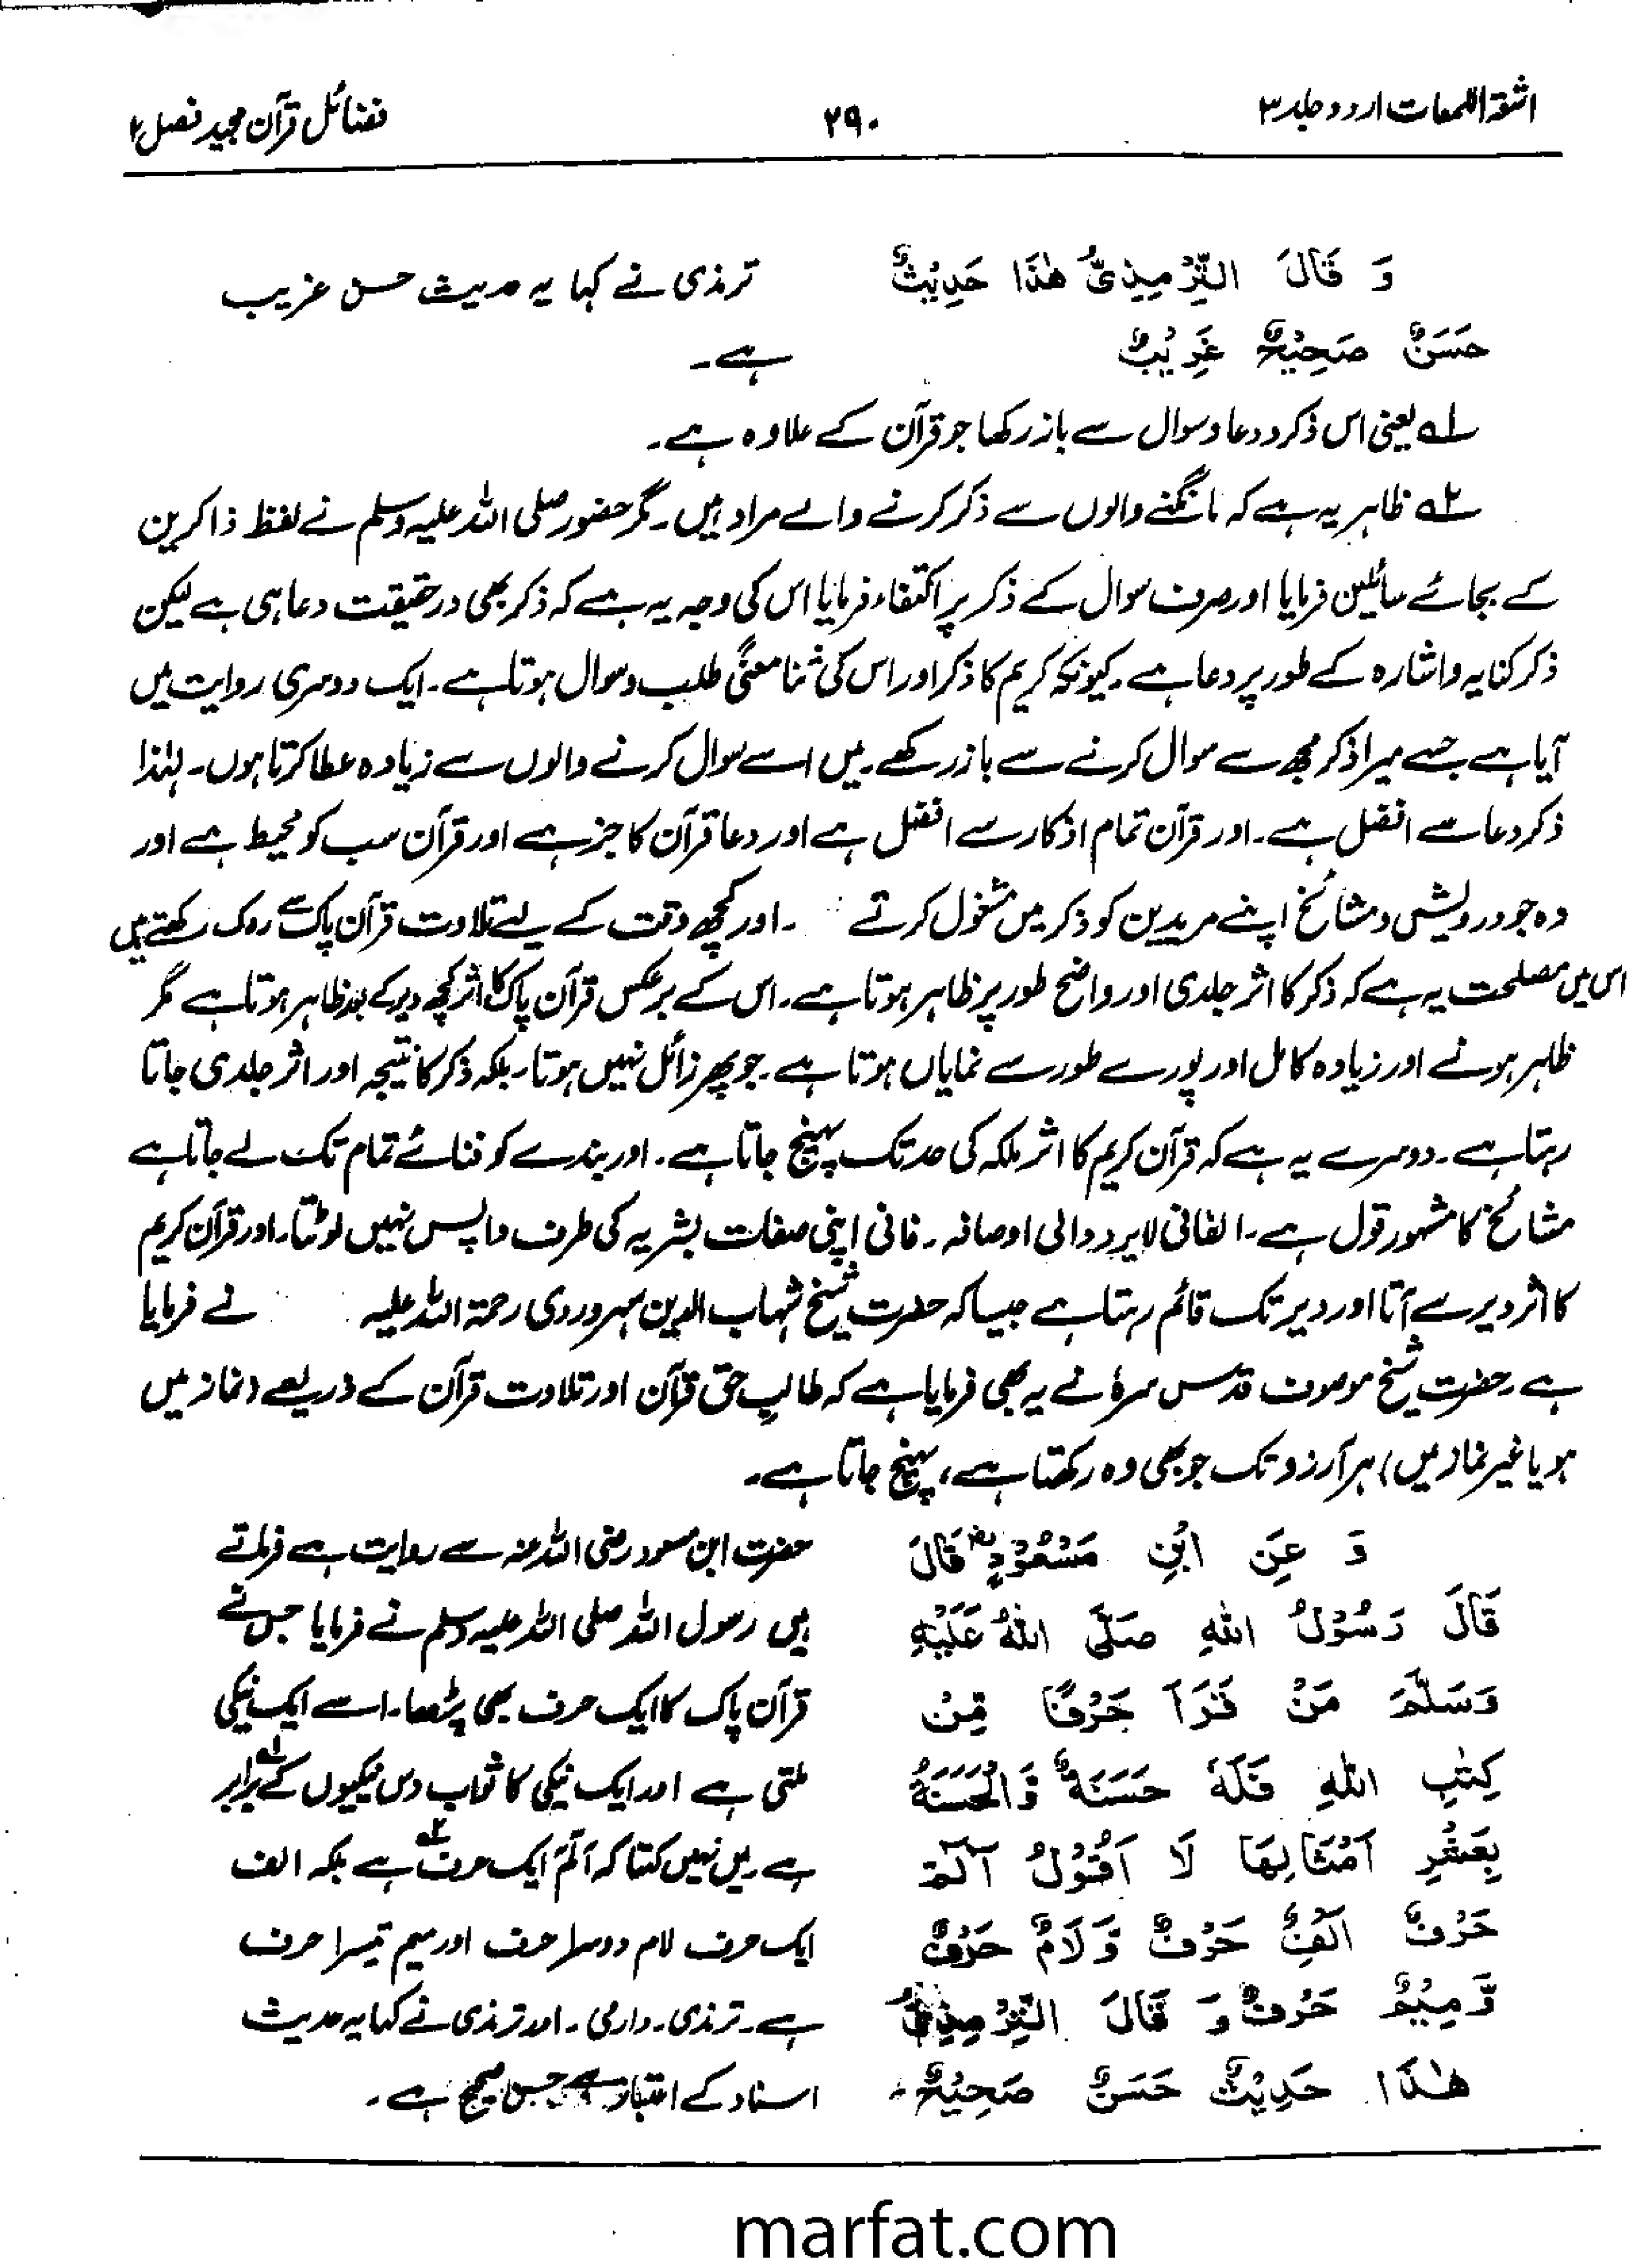 اشعۃ اللمعات اردو جلد ۳ ۲۹۰ فضائل قرآن مجید فصل ۲
وَ قَالَ التِّرْمِذِیُّ هٰذَا حَدِیْثٌ
حَسَنٌ صَحِیْحٌ غَرِیْبٌ
ترمذی نے کہا یہ حدیث حسن غریب
ہے۔
۱؎ یعنی اس ذکر و دعا و سوال سے باز رکھا جو قرآن کے علاوہ ہے۔
۲؎ ظاہر یہ ہے کہ مانگنے والوں سے ذکر کرنے والے مراد ہیں۔ مگر حضور صلی اللہ علیہ وسلم نے لفظ ذاکرین
کے بجائے سائلین فرمایا اور صرف سوال کے ذکر پر اکتفاء فرمایا اس کی وجہ یہ ہے کہ ذکر بھی درحقیقت دعا ہی ہے لیکن
ذکر کنایہ و اشارہ کے طور پر دعا ہے۔ کیونکہ کریم کا ذکر اور اس کی ثنا معنیً طلب و سوال ہوتا ہے۔ ایک دوسری روایت میں
آیا ہے جسے میرا ذکر مجھ سے سوال کرنے سے باز رکھے۔ میں اسے سوال کرنے والوں سے زیادہ عطا کرتا ہوں۔ لہٰذا
ذکر دعا سے افضل ہے۔ اور قرآن تمام اذکار سے افضل ہے اور دعا قرآن کا جز ہے اور قرآن سب کو محیط ہے اور
وہ جو درویش و مشائخ اپنے مریدین کو ذکر میں مشغول کرتے ۔ اور کچھ وقت کے لیے تلاوت قرآن پاک سے روک رکھتے ہیں
اس میں مصلحت یہ ہے کہ ذکر کا اثر جلدی اور واضح طور پر ظاہر ہوتا ہے۔ اس کے برعکس قرآن پاک کا اثر کچھ دیر کے بعد ظاہر ہوتا ہے مگر
ظاہر ہونے اور زیادہ کامل اور پورے طور سے نمایاں ہوتا ہے۔ جو پھر زائل نہیں ہوتا۔ بلکہ ذکر کا نتیجہ اور اثر جلدی جاتا
رہتا ہے۔ دوسرے یہ ہے کہ قرآن کریم کا اثر ملکہ کی حد تک پہنچ جاتا ہے۔ اور بندے کو فنائے تمام تک لے جاتا ہے
مشائخ کا مشہور قول ہے۔ الفانی لا یرد والی اوصافہ۔ فانی اپنی صفات بشریہ کی طرف واپس نہیں لوٹتا۔ اور قرآن کریم
کا اثر دیر سے آتا اور دیر تک قائم رہتا ہے جیسا کہ حضرت شیخ شہاب الدین سہروردی رحمۃ اللہ علیہ نے فرمایا
ہے۔ حضرت شیخ موصوف قدس سرہٗ نے یہ بھی فرمایا ہے کہ طالبِ حق قرآن اور تلاوت قرآن کے ذریعے (نماز میں
ہو یا غیر نماز میں) ہر آرزو تک جو بھی وہ رکھتا ہے، پہنچ جاتا ہے۔
وَ عَنِ ابْنِ مَسْعُوْدٍ رض قَالَ
قَالَ رَسُوْلُ اللهِ صَلَّی اللهُ عَلَیْهِ
وَسَلَّمَ مَنْ قَرَأَ حَرْفًا مِّنْ
كِتٰبِ اللهِ فَلَهٗ حَسَنَةٌ وَّالْحَسَنَةُ
بِعَشْرِ اَمْثَالِهَا لَا اَقُوْلُ آلٓمّٓ
حَرْفٌ اَلْفٌ حَرْفٌ وَّلَامٌ حَرْفٌ
وَّمِیْمٌ حَرْفٌ وَ قَالَ التِّرْمِذِیُّ
هٰذَا حَدِیْثٌ حَسَنٌ صَحِیْحٌ۔
حضرت ابن مسعود رضی اللہ عنہ سے روایت ہے فرماتے
ہیں رسول اللہ صلی اللہ علیہ وسلم نے فرمایا جس نے
قرآن پاک کا ایک حرف بھی پڑھا۔ اسے ایک نیکی
ملتی ہے اور ایک نیکی کا ثواب دس نیکیوں کے برابر ۱؎
ہے میں نہیں کہتا کہ آلٓمّ ایک حرف ۲؎ ہے بلکہ الف
ایک حرف لام دوسرا حرف اور میم تیسرا حرف
ہے۔ ترمذی۔ دارمی۔ اور ترمذی نے کہا یہ حدیث
اسناد کے اعتبار سے حسن صحیح ہے۔
marfat.com